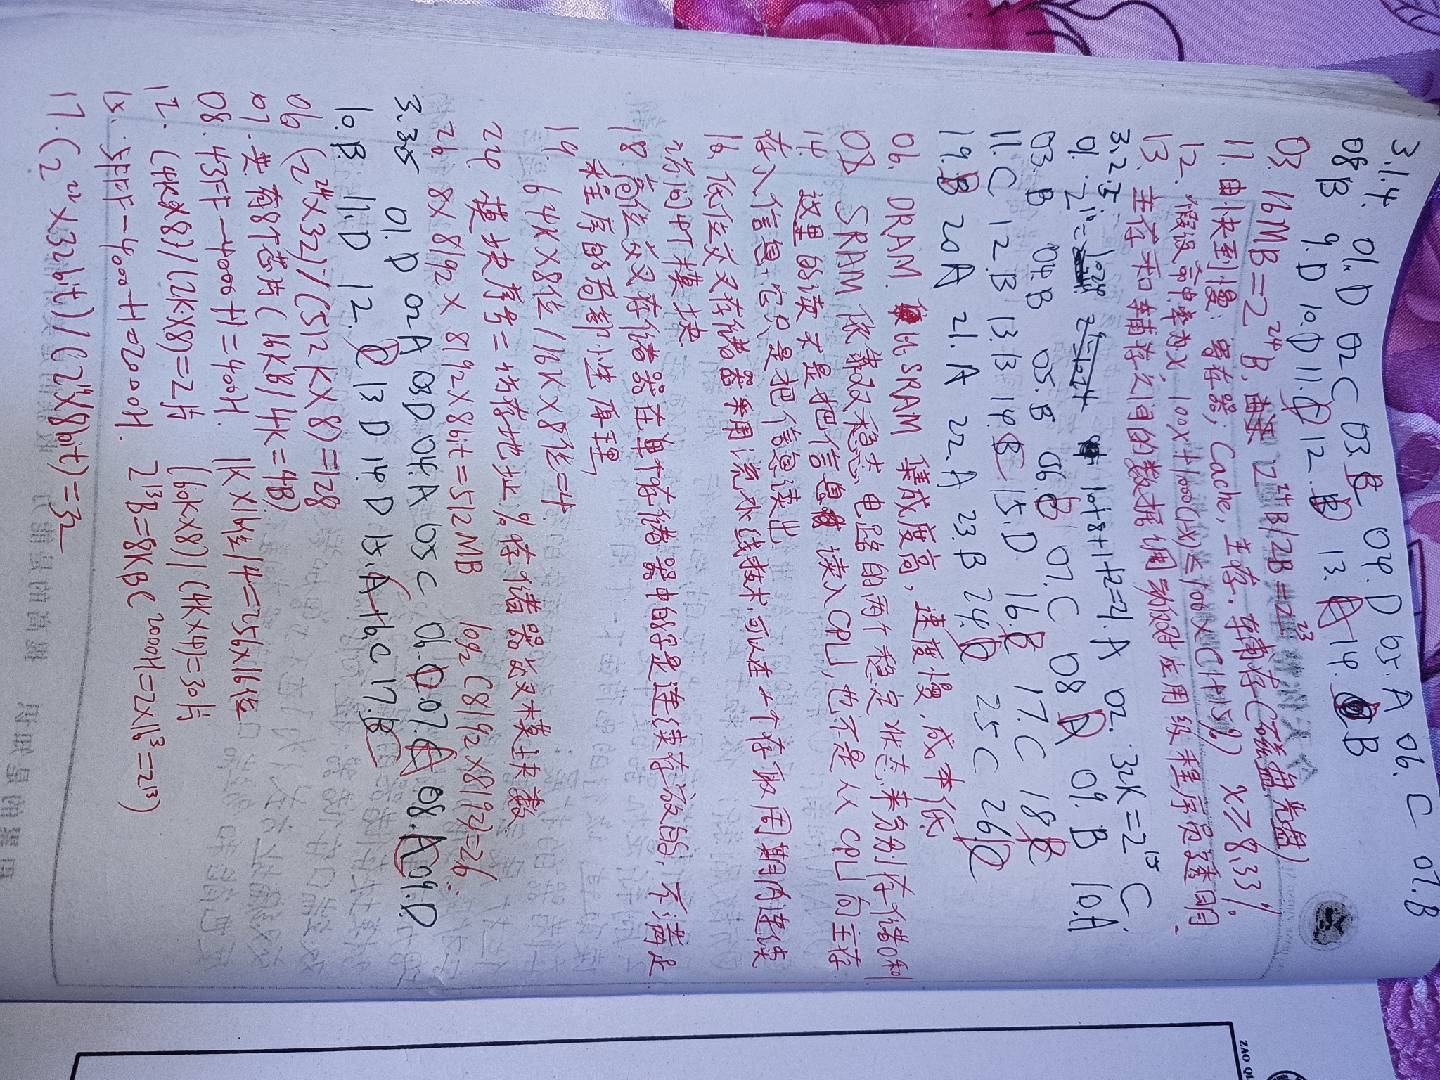 3.1.4. 01.D 02 C 03.B 04.D 05.A 06.C 07.B
08 B 9.D 10.D 11.D 12.D 13.A 14.B
03. 16MB=2^24B, 2^24B/2B=2^23
11.由快到慢:寄存器,Cache,主存.辅存(磁盘,光盘)
12.假设命中率为x,100x+1000(1-x)≤100×(1+15%) x≥8.33%
13.主存和辅存之间的数据调动仅对应用级程序员透明.
3.2.5
01. 2^10= 10+8+1+2=21.A 02. 32K=2^15 C.
03.B 04.B 05.B 06.B 07.C 08 D 09.B 10.A
11.C 12.B 13.B 14.C 15.D 16.B 17.C 18.B
19.B 20A 21.A 22.A 23.B 24.D 25C 26.D
06. DRAM.比SRAM集成度高,速度慢,成本低
08 SRAM依靠双稳态电路的两个稳定状态来分别存储0和1
14 这里的读不是把信息读入CPU,也不是从CPU向主存
存入信息,它只是把信息读出
16.低位交叉存储器采用流水线技术,可以在一个存取周期内连续
访问4个模块
18.高位交叉存储器在单个存储器中的字是连续存放的,不满足
程序的局部性原理,
19. 64K×8位/16K×8位=4
24.模块序号=访存地址%存储器交叉模块数
26. 8×8192×8192×8bit=512MB log2(8192×8192)=26.
3.3.5 01.D 02A 03D 04.A 05C 06.D 07.A 08.C 09.D
10.B 11.D 12.D 13 D 14.D 15.C 16.C 17.C
06 (2^24×32)/(512K×8)=128
07.共有8个芯片(16KB/4K=4B)
08.43FF-4000+1=400H. 1K×16位/4=256×16位
12.(4K×8)/(2K×8)=2片 (60K×8)/(4K×4)=30片
15.5FFF-4000+1=2000H. 2^13B=8KB(2000H=2×16^3=2^13)
17.(2^22×32bit)/(2^19×8bit)=32
ZAO QI